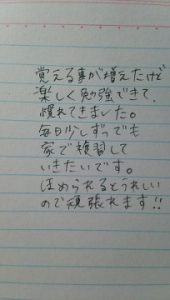 覚える事が増えたけど
楽しく勉強できて、
慣れてきました。
毎日少しずつでも
家で復習して
いきたいです。
ほめられるとうれしい
ので頑張れます!!